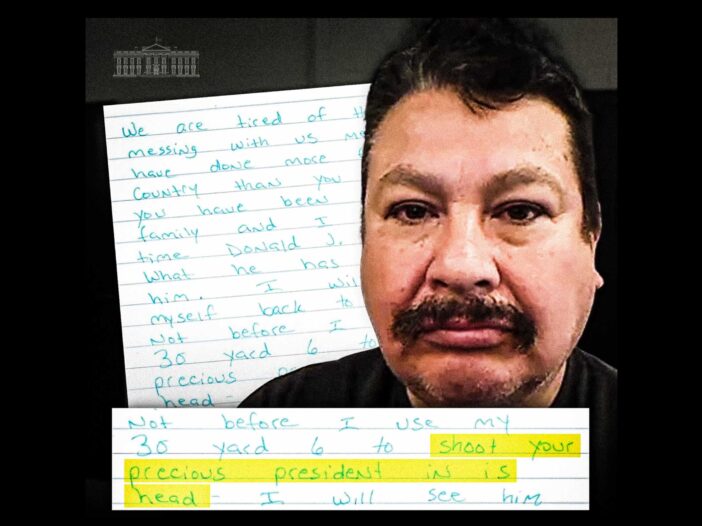 We are tired of
messing with us
have done more
Country than you
you have been
family and I
time Donald J.
What he has
him. I
myself back to
Not before I
30 yard 6 to
precious
head-
Not before I use my
30 yard 6 to shoot your
precious president in is
head- I will see him